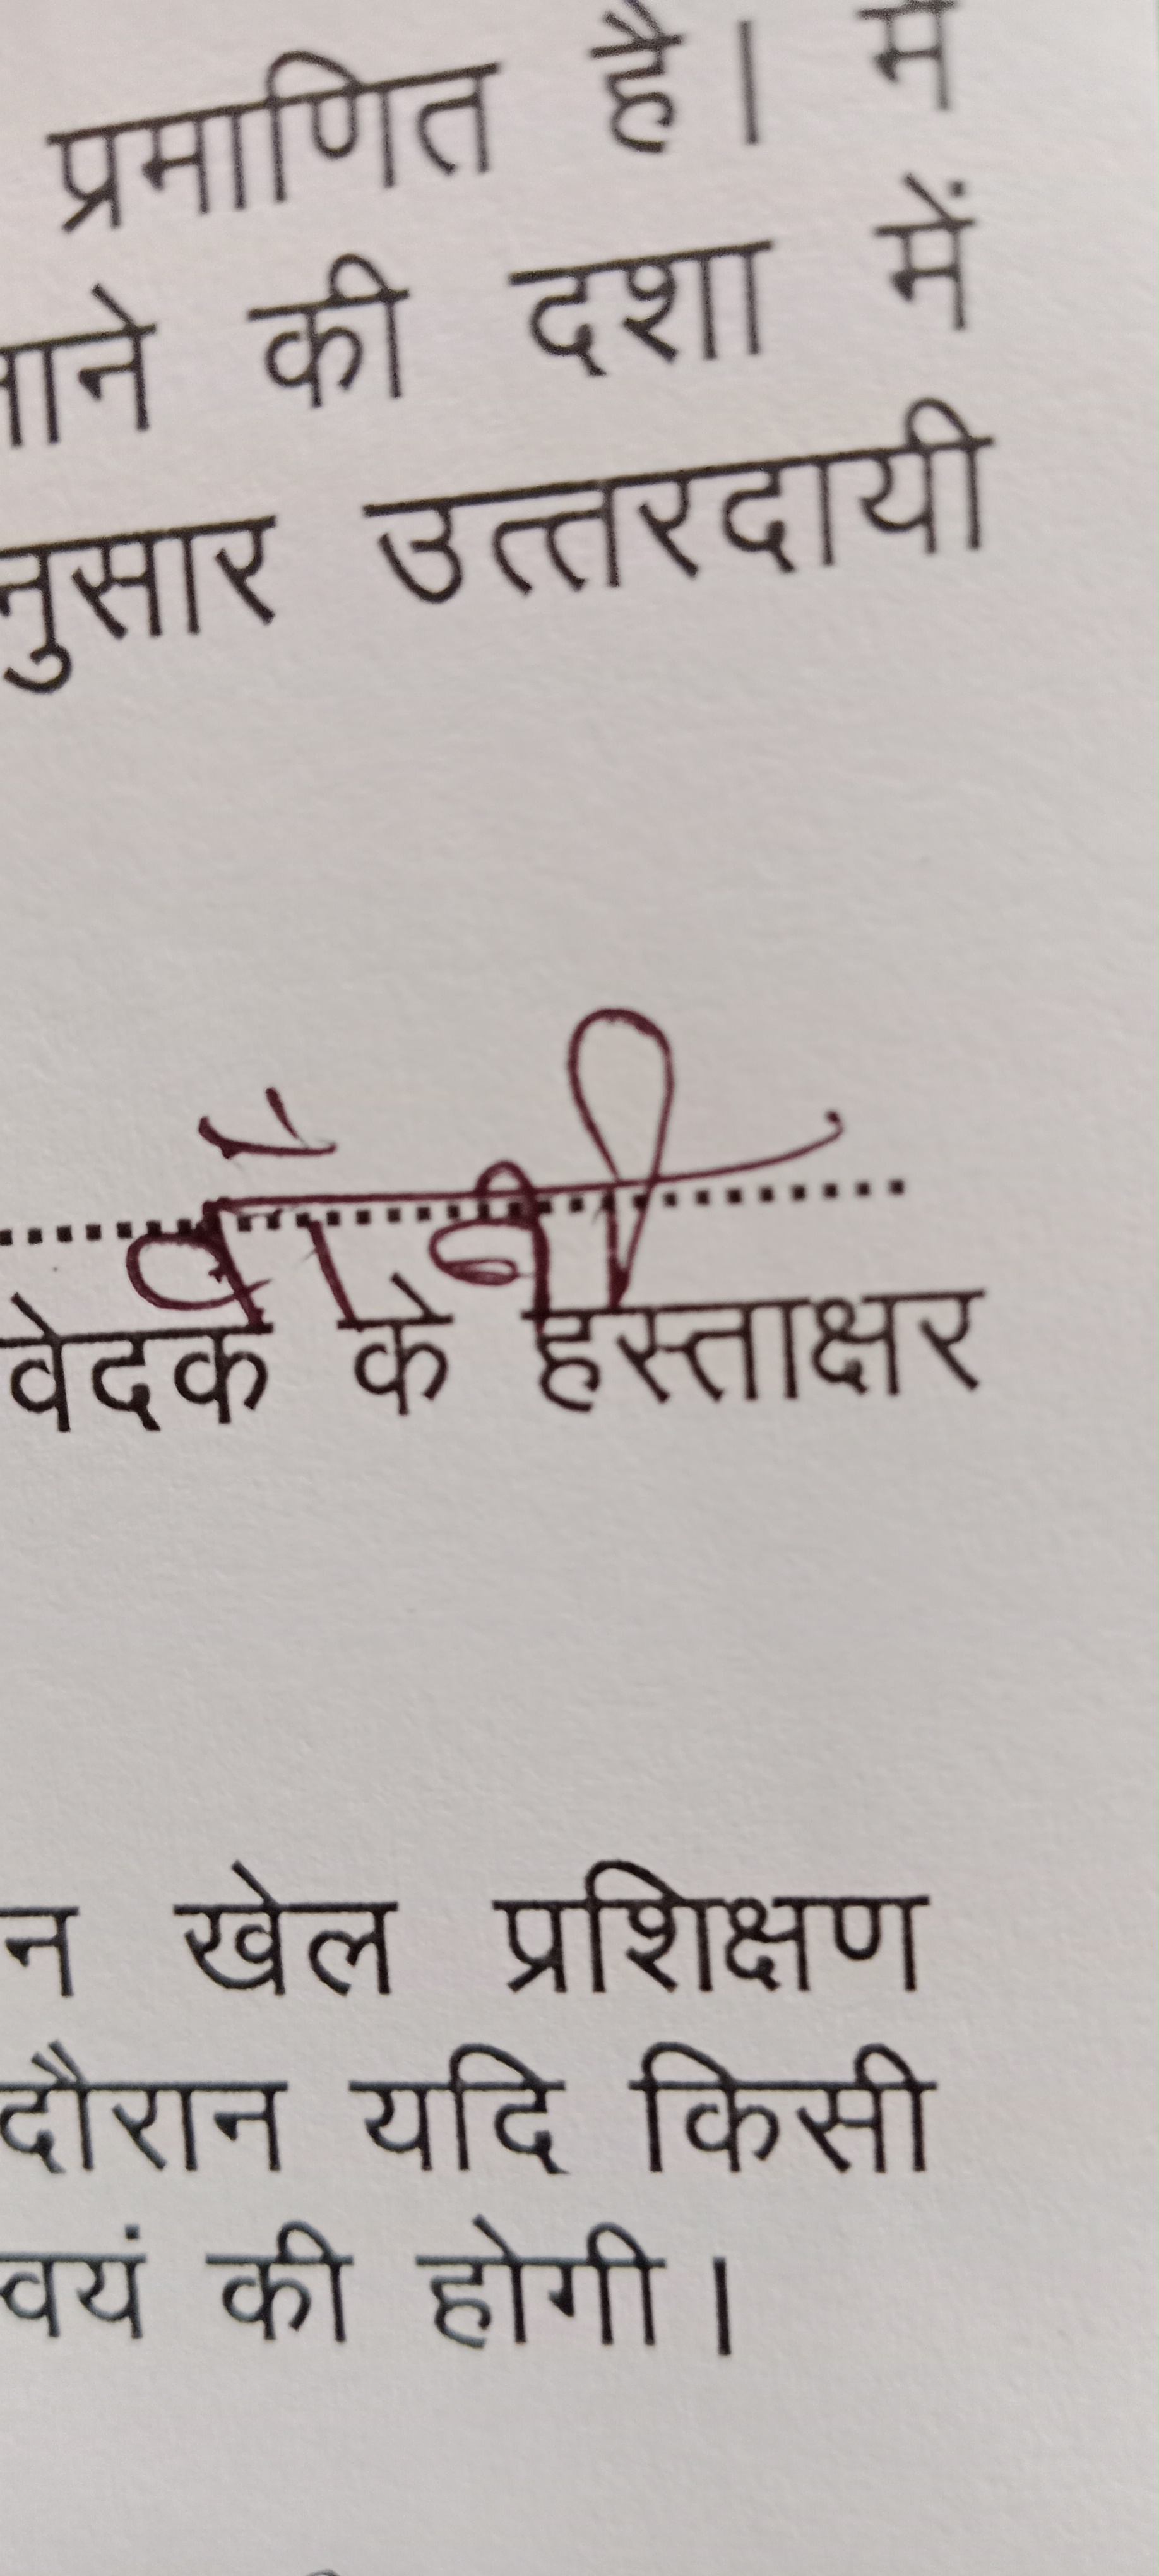 प्रमाणित है। मैं
की दशा में
नुसार उत्तरदायी
बॉबी
वेदक के हस्ताक्षर
न खेल प्रशिक्षण
दौरान यदि किसी
वयं की होगी।